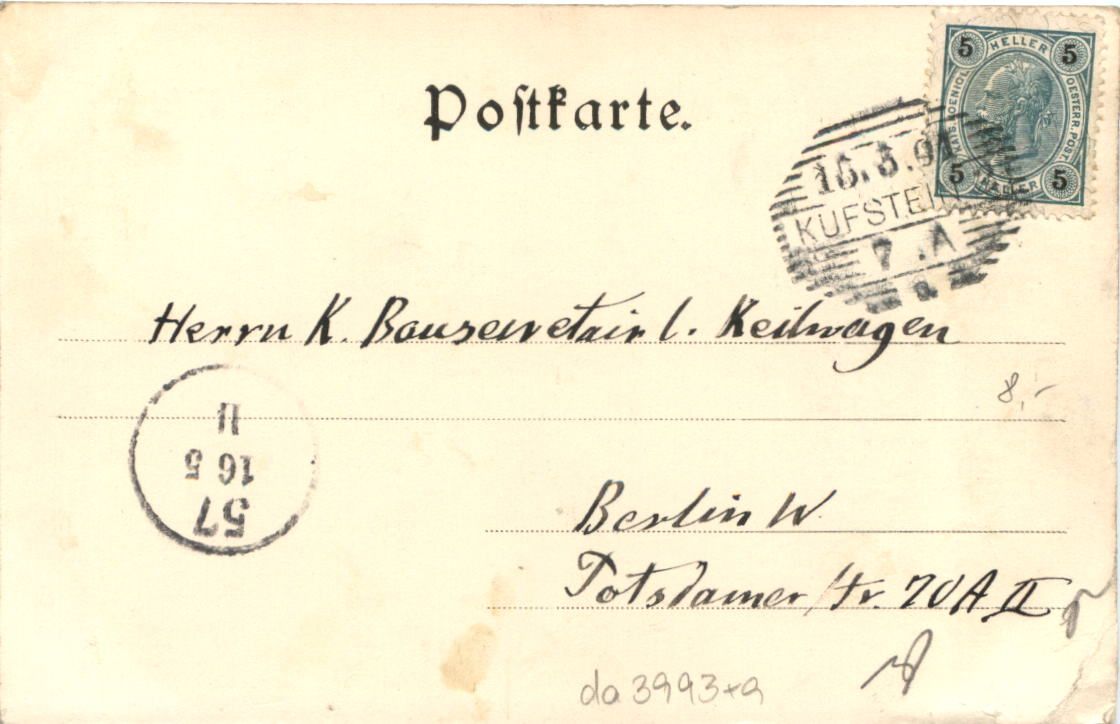 Postkarte.
5 HELLER 5
KAIS. KOENIGL. OESTERR. POST.
5 HELLER 5
KUFSTEIN
7 . A
a
Herrn K. Bausecretair l. Keilwagen
8,-
11
16 5
57
Berlin W
Potsdamer str. 70 A II
da 3993+a